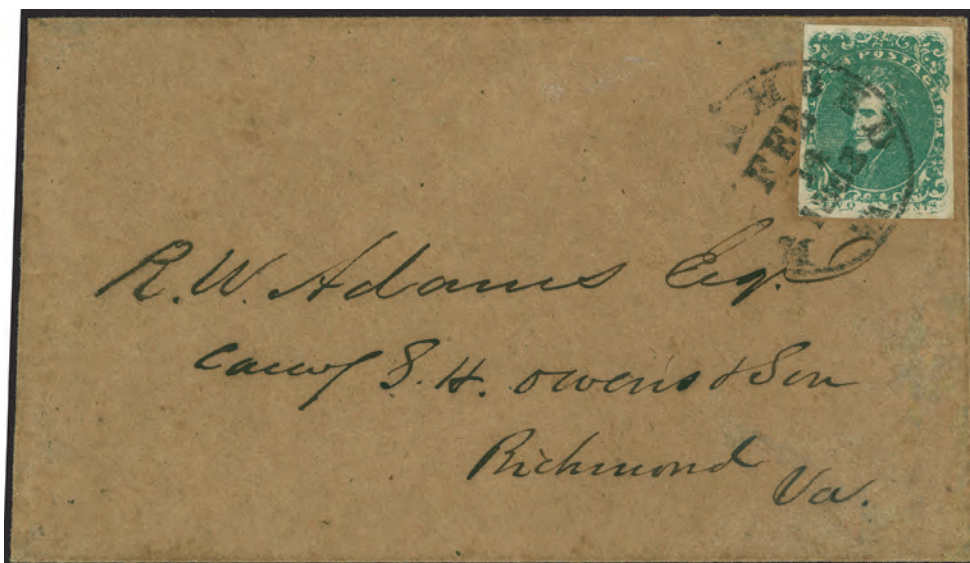 POSTAGE
FEB
CENTS
R. W. Adams Esq.
care of S. H. Owens & Son
Richmond
Va.